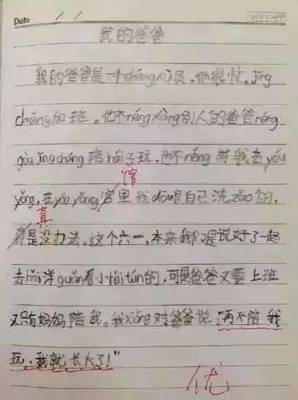 Date
我的爸爸
我的爸爸是一个chǎng 员,他很忙,jīng
cháng加班。他不néng xiàng别人的爸爸néng
gòu jīng cháng陪hái子玩,他不néng带我去yóu
yǒng,在yóu yǒng馆里我dōu是自己洗zǎo的,
真是没办法。这个六一,本来我们是说好了一起
去hǎi洋guǎn看小hǎi tún的,可是爸爸又要上班
又只有妈妈陪我。我xiǎng对爸爸说"再不陪我
玩,我就长大了!"
优